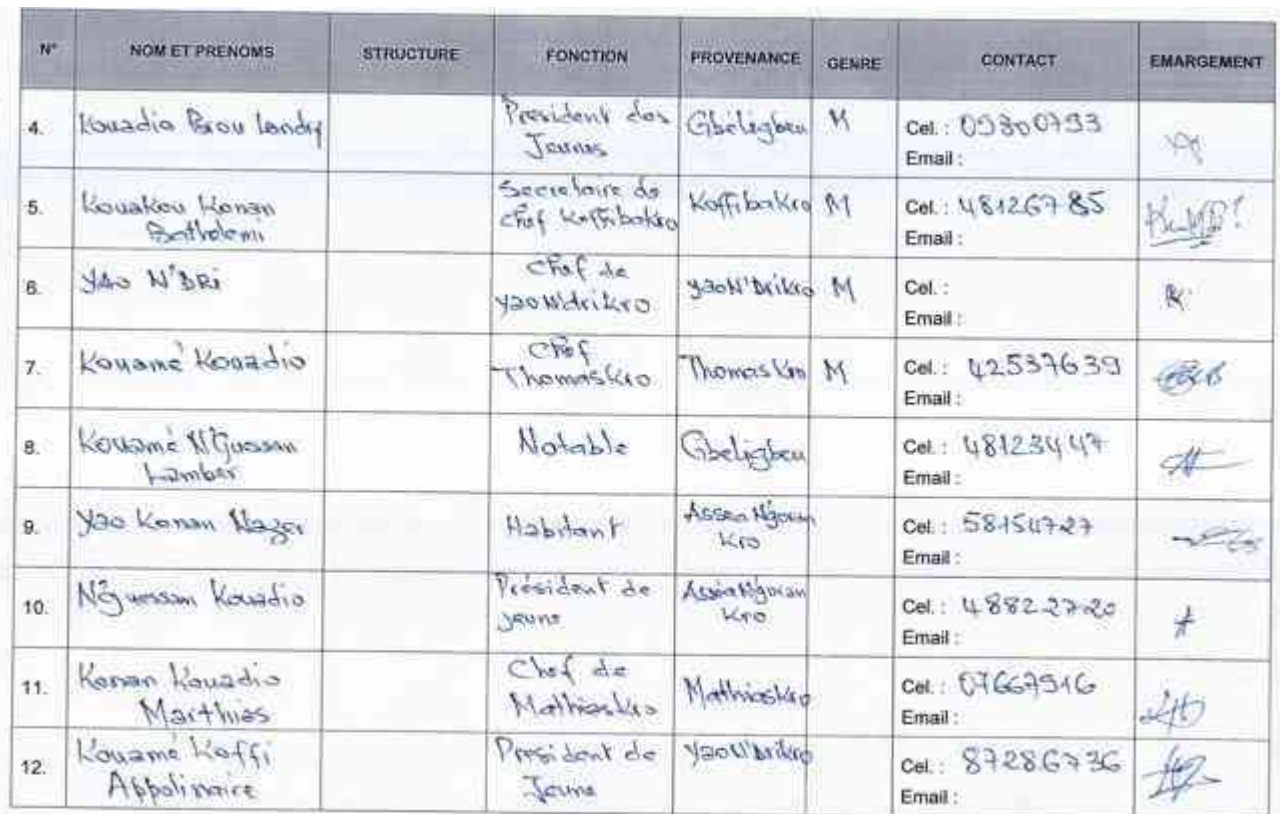 N° NOM ET PRENOMS STRUCTURE FONCTION PROVENANCE GENRE CONTACT EMARGEMENT
4. Kouadio Brou Landry Président des Jeunes Gbéligbeu M Cel. : 09300793
Email :
5. Kouakou Konan Batholemi Secretaire de chef Koffibakro Koffibakro M Cel. : 48126785
Email :
6. YAO N'DRi Chef de yaoN'drikro yaoN'Drikro M Cel. :
Email :
7. Kouamé Kouadio Chef Thomaskro Thomaskro M Cel. : 42537639
Email :
8. Kouamé N'Guessan Lamber Notable Gbeligbeu Cel. : 48123447
Email :
9. Yao Konan Nazer Habitant Kro Cel. : 58154727
Email :
10. N'guessan Kouadio Président de jeune Kro Cel. : 48822720
Email :
11. Konan Kouadio Marthias Chef de Mathiaskro Mathiaskro Cel. : 07667916
Email :
12. Kouamé Koffi Appolinaire Président de Jeune YaoN'Drikro Cel. : 87286736
Email :